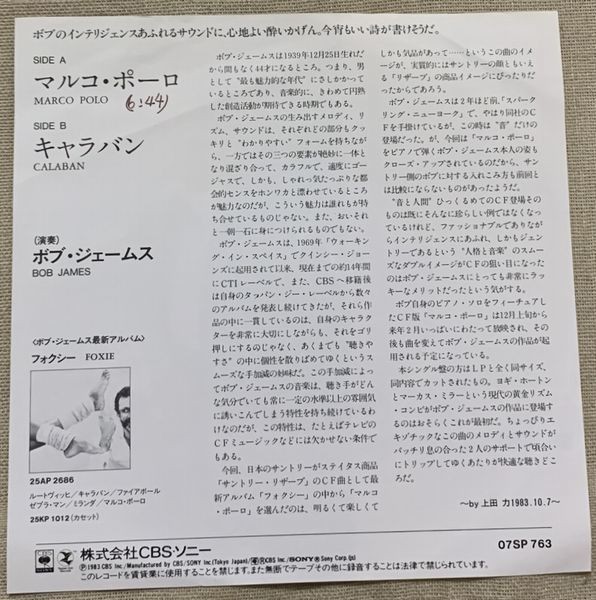 ボブのインテリジェンスあふれるサウンドに、心地よい酔いかげん。今宵もいい詩が書けそうだ。
SIDE A
マルコ・ポーロ
MARCO POLO
(6:44)
SIDE B
キャラバン
CALABAN
〈演奏〉
ボブ・ジェームス
BOB JAMES
〈ボブ・ジェームス最新アルバム〉
フォクシー FOXIE
25AP 2686
ルートヴィッヒ/キャラバン/ファイアボール
ゼブラ・マン/ミランダ/マルコ・ポーロ
25KP 1012(カセット)
ボブ・ジェームスは1939年12月25日生れだ
から間もなく44才になるところ。つまり、男
として“最も魅力的な年代”にさしかかって
いるところであり、音楽的に、きわめて円熟
した創造活動が期待できる時期でもある。
ボブ・ジェームスの生み出すメロディ、リ
ズム、サウンドは、それぞれどの部分もクッ
キリと“わかりやすい”フォームを持ちなが
ら、一方ではその三つの要素が絶妙に一体と
なり混ざり合って、カラフルで、適度にゴー
ジャスで、しかも、しゃれっ気たっぷりな都
会的センスをホンワカと漂わせているところ
が魅力なのだが、こういう魅力は誰れもが持
ち合せているものじゃない。また、おいそれ
と一朝一石に身につけられるものでもない。
ボブ・ジェームスは、1969年「ウォーキン
グ・イン・スペイス」でクインシー・ジョー
ンズに起用されて以来、現在までの約14年間
にCTIレーベルで、また、CBSへ移籍後
は自身のタッパン・ジー・レーベルから数々
のアルバムを発表し続けてきたが、それら作
品の中に一貫しているのは、自身のキャラク
ターを非常に大切にしながらも、それをゴリ
押しにするのじゃなく、あくまでも“聴きや
すさ”の中に個性を散りばめてゆくというス
ムーズな手加減の妙味だ。この手加減によっ
てボブ・ジェームスの音楽は、聴き手がどん
な気分でいても常に一定の水準以上の雰囲気
に誘いこんでしまう特性を持ち続けているわ
けなのだが、この特性は、たとえばテレビの
CFミュージックなどには欠かせない条件で
もある。
今回、日本のサントリーがステイタス商品
「サントリー・リザーブ」のCF曲として最
新アルバム「フォクシー」の中から「マルコ
・ポーロ」を選んだのは、明るくて楽しくて
しかも気品があって……というこの曲のイメ
ージが、実質的にはサントリーの顔ともいえ
る「リザーブ」の商品イメージにぴったりだ
ったからであろう。
ボブ・ジェームスは2年ほど前、「スパーク
リング・ニューヨーク」で、やはり同社のC
Fを手掛けているが、この時は“音”だけの
登場だった。が、今回は「マルコ・ポーロ」
をピアノで弾くボブ・ジェームス本人の姿も
クローズ・アップされているのだから、サント
リー側のボブに対する入れこみ方も前回と
は比較にならないものがあったようだ。
“音と人間”ひっくるめてのCF登場そのも
のは既にそんなに珍らしい例ではなくなって
いるけれど、ファッショナブルでありなが
らインテリジェンスにあふれ、しかもジェント
リーであるという“人格と音楽”のスムー
ズなダブルイメージがCFの狙い目になった
のはボブ・ジェームスにとっても非常にラッ
キーなメリットだったという気がする。
ボブ自身のピアノ・ソロをフィーチュアし
たCF版「マルコ・ポーロ」は12月上旬から
来年2月いっぱいにわたって放映され、その
後も曲を変えてボブ・ジェームスの作品が起
用される予定になっている。
本シングル盤の方はLPと全く同サイズ、
同内容でカットされたもの。ヨギ・ホートン
とマーカス・ミラーという現代の黄金リズム
・コンビがボブ・ジェームスの作品に登場す
るのはおそらくこれが最初だ。ちょっぴりエ
キゾチックなこの曲のメロディとサウンドが
バッチリ息の合った2人のサポートで頃合い
にトリップしてゆくあたりが快適な聴きどこ
ろだ。
〜by 上田 力1983.10.7〜
株式会社CBS・ソニー
07SP 763
Ⓟ1983 CBS Inc. Manufactured by CBS/SONY Inc (Tokyo Japan)/ CBS Inc./SONY Sony Corp.(s)
このレコードを賃貸業に使用することを禁じます。また無断でテープその他に録音することは法律で禁じられています。